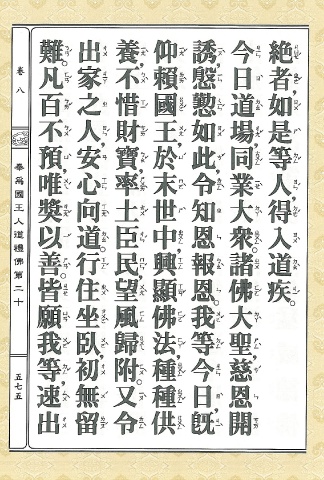 絶者,如是等人,得入道疾。
今日道場,同業大衆,諸佛大聖,慈恩開
誘,慇懃如此,令知恩報恩。我等今日,旣
仰賴國王,於末世中,興顯佛法,種種供
養,不惜財寶,率土臣民,望風歸附。又令
出家之人,安心向道。行住坐臥,初無留
難。凡百不預,唯獎以善。皆願我等,速出
卷八
奉爲國王人道禮佛第二十
五七五